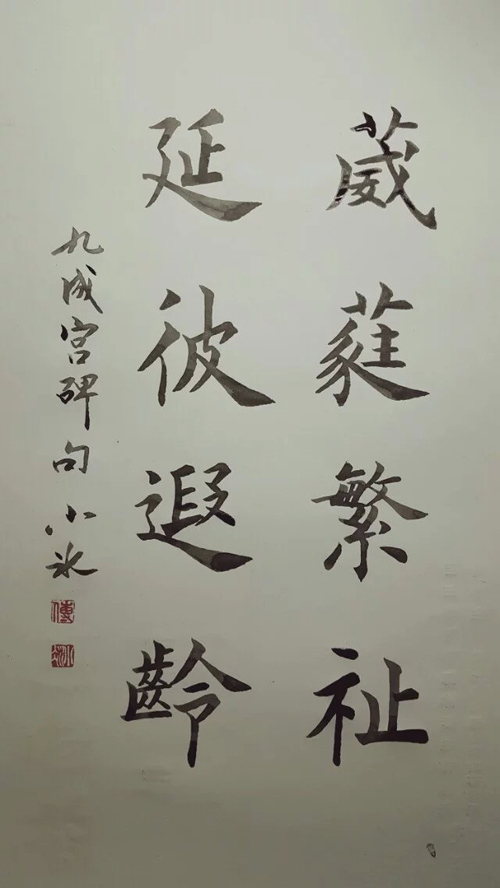 葳蕤繁祉
延彼遐齡
九成宮碑句 小冰